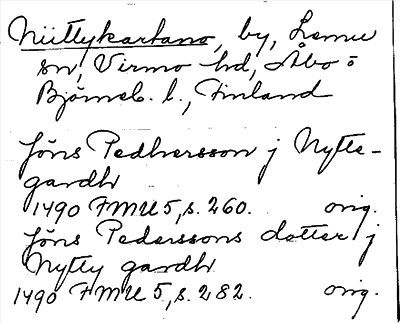 Niittykartano, by, Lemu
sn, Virmo hd, Åbo o
Björneb. l., Finland
Jöns Pedhersson j Nytte-
gardh
1490 FMU 5, s. 260. orig.
Jöns Pederssons dotter j
Nytty gardh
1490 FMU 5, s. 282. orig.